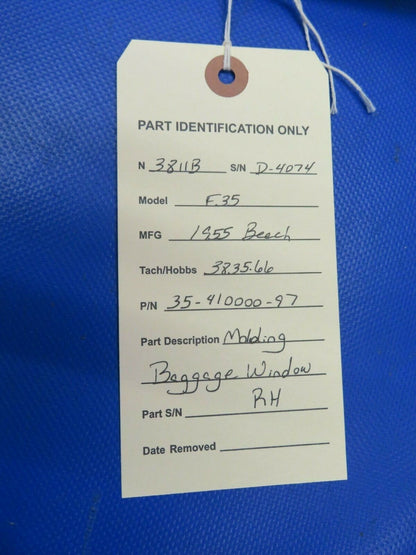 PART IDENTIFICATION ONLY
N 3811B S/N D-4074
Model F35
MFG 1955 Beech
Tach/Hobbs 3835.66
P/N 35-410000-97
Part Description Molding
Baggage Window
RH
Part S/N
Date Removed